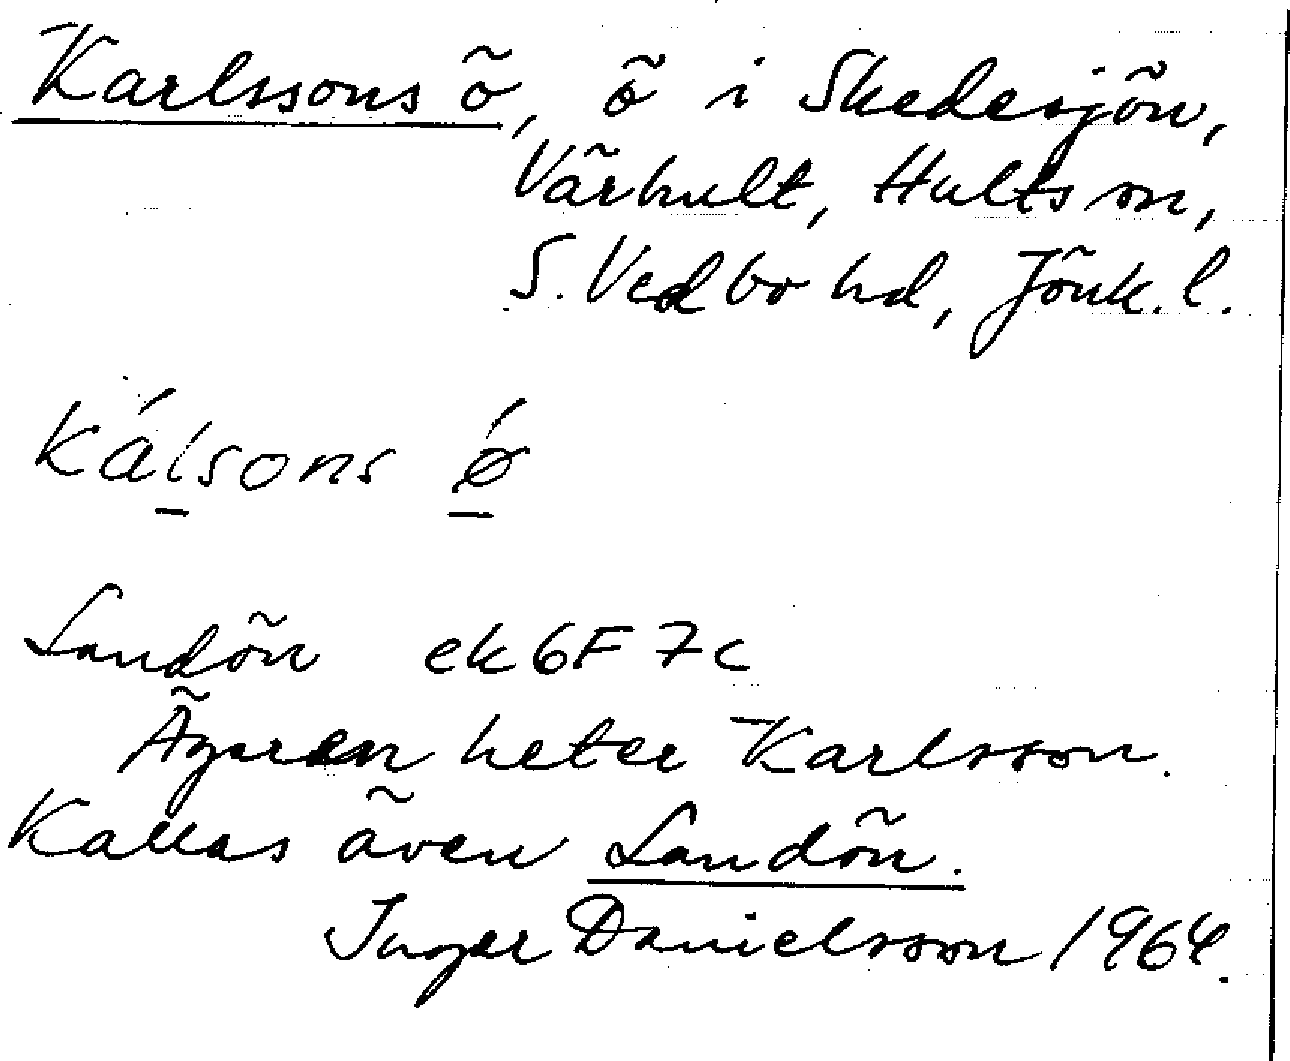 Karlssons ö, ö i Skedesjön,
Värhult, Hultsön,
S. Vedbo hd, Jönk. l.
kálsons ǿ
Sandön ek 6F 7c
Ägaren heter Karlsson.
Kallas även Sandön.
Inger Danielsson 1964.